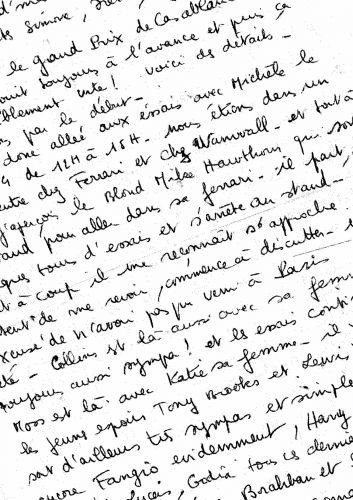 d'm
ts Simone,
le grand Prix de Casablanca
toujours à l'avance et puis ça
blement vite! voici des détails -
par le début -
donc allée aux essais avec Michèle le
de 12H à 15H - nous étions dans un
entre chez Ferrari et chez Wanwall - et tout à
j'aperçois le Blond Mike Hawthorn qui so
and, pour aller dans sa ferrari - il part,
ques tours d'essais et s'arrête au stand -
t à coup il me reconnait s'approche
tent de me revoir, commence à discutter -
xcuse de n'avoir pas pu venir à Paris
té - Collins est là aussi avec sa femm
toujours aussi sympa! et les essais conti
Moss est là avec Katie sa femme - il
les jeunes espoirs Tony Brookes et Lewis
sont d'ailleurs très sympas et simple
encore Fangio evidemment, Harry
Godia tous ces dernie
Brabham et